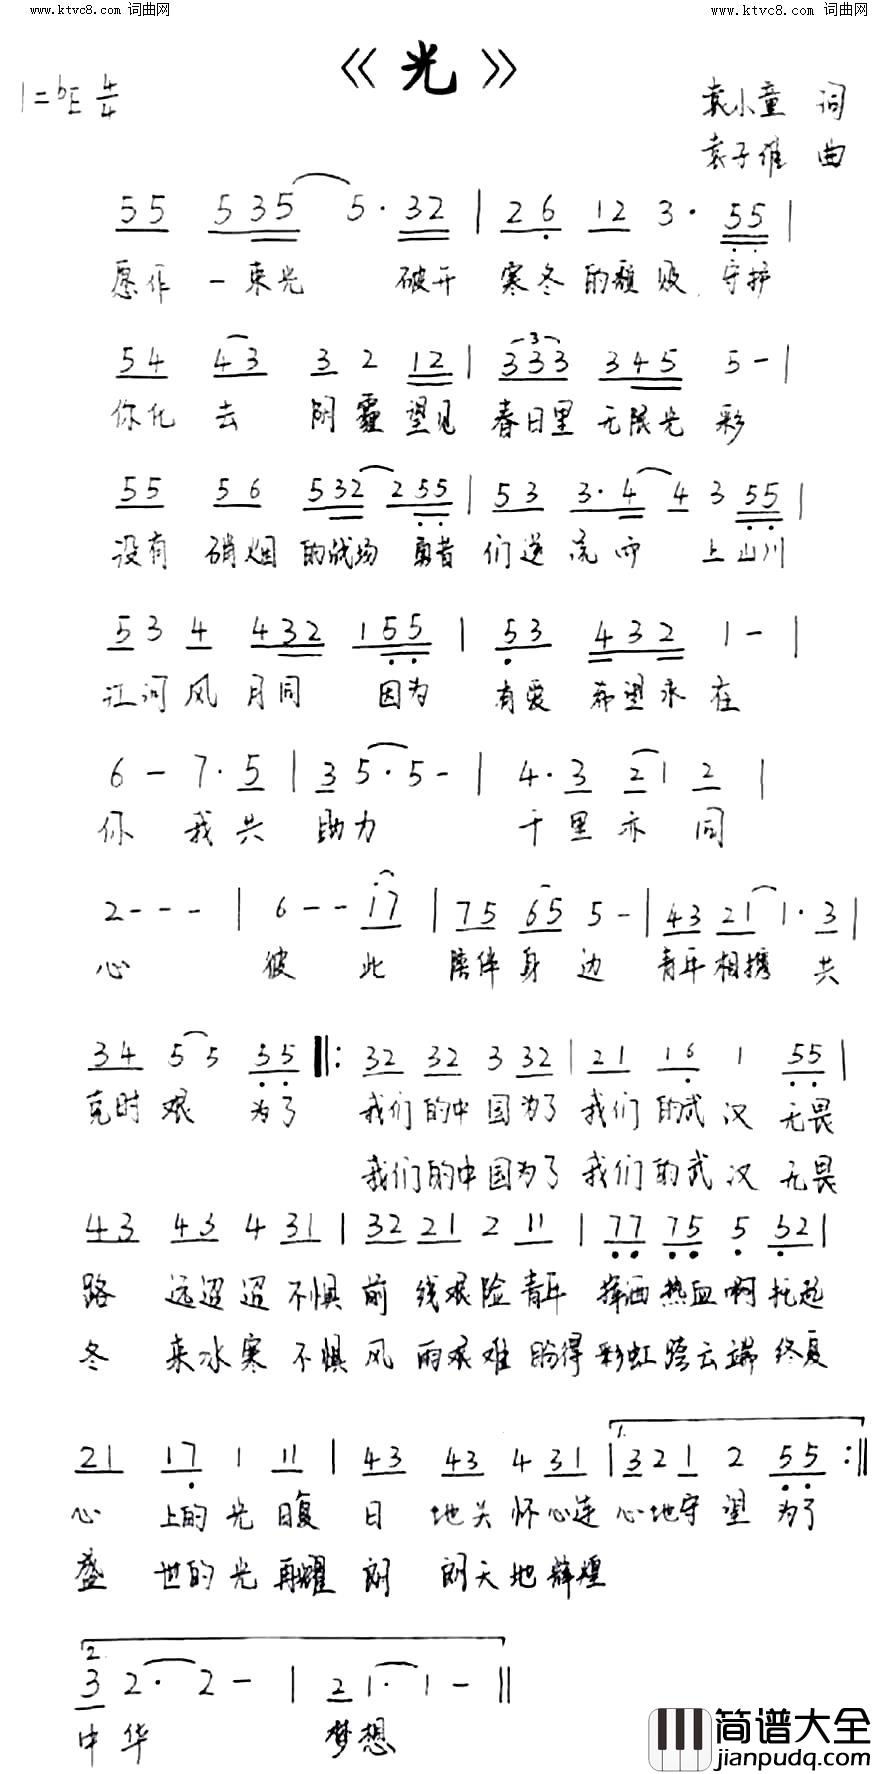 www.ktvc8.com 词曲网
www.ktvc8.com 词曲网
《光》
1=bE 4/4
袁小童 词
袁子淮 曲
55 535 5· 32 | 26 12 3· 55 |
愿作 一束光 破开 寒冬的颓败 守护
54 43 3 2 12 | 333 345 5 - |
你化 去 阴霾 望见 春日里 无限光 彩
55 56 532 255 | 53 3·4 4 3 55 |
没有 硝烟 的战场 勇者 们逆 流而 上 山川
53 4 432 155 | 53 432 1 - |
江河 风 月同 因为 有爱 希望永 在
6 - 7· 5 | 3 5· 5 - | 4· 3 21 2 |
你 我共 助力 千里亦 同
2 - - - | 6 - - 17 | 75 65 5 - | 43 21 1· 3 |
心 彼 此 陪伴 身 边 青年 相携 共
34 55 55 ‖: 32 32 3 32 | 21 16 1 55 |
克时 艰 为了 我们的中国为了 我们的武汉 无畏
我们的中国为了 我们的武汉 无畏
43 43 4 31 | 32 21 2 11 | 77 75 5 52 |
路 远迢迢 不惧前 线艰险青年 挥洒热血啊托起
冬 来冰寒 不惧风 雨艰难盼得 彩虹跨云端 终复
21 17 1 11 | 43 43 4 31 | 1. 321 2 55 :‖
心 上的光 日复 日 地关怀心连 心地守望 为了
盛 世的光 再耀 朗 朗天地辉煌
2. 3 2· 2 - | 21· 1 - ‖
中华 梦想
简谱大全
jianpudq.com